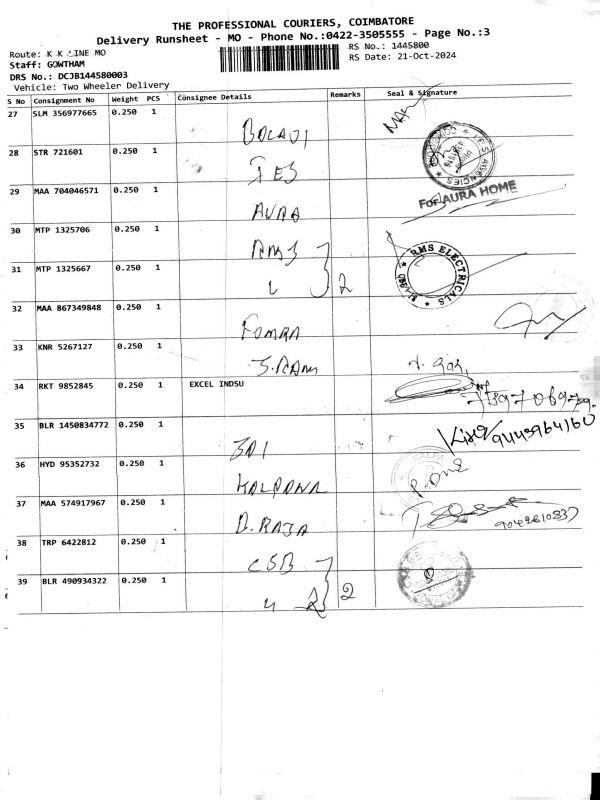 THE PROFESSIONAL COURIERS, COIMBATORE
Delivery Runsheet - MO - Phone No.:0422-3505555 - Page No.:3
Route: K K LINE MO
RS No.: 1445800
Staff: GOWTHAM
RS Date: 21-Oct-2024
DRS No.: DCJB144580003
Vehicle: Two Wheeler Delivery
S No Consignment No Weight PCS Consignee Details Remarks Seal & Signature
27 SLM 356977665 0.250 1
28 STR 721601 0.250 1
YES AGENCIES
29 MAA 704046571 0.250 1 AURA
For AURA HOME
30 MTP 1325706 0.250 1 RMS
RMS ELECTRICALS
31 MTP 1325667 0.250 1 2
32 MAA 867349848 0.250 1 FOMRA
33 KNR 5267127 0.250 1 S.RAM
34 RKT 9852845 0.250 1 EXCEL INDSU
35 BLR 1450834772 0.250 1 SAI 9443964160
36 HYD 95352732 0.250 1 KALPANA
37 MAA 574917967 0.250 1 D.RAJA
38 TRP 6422812 0.250 1 CSB
39 BLR 490934322 0.250 1 2